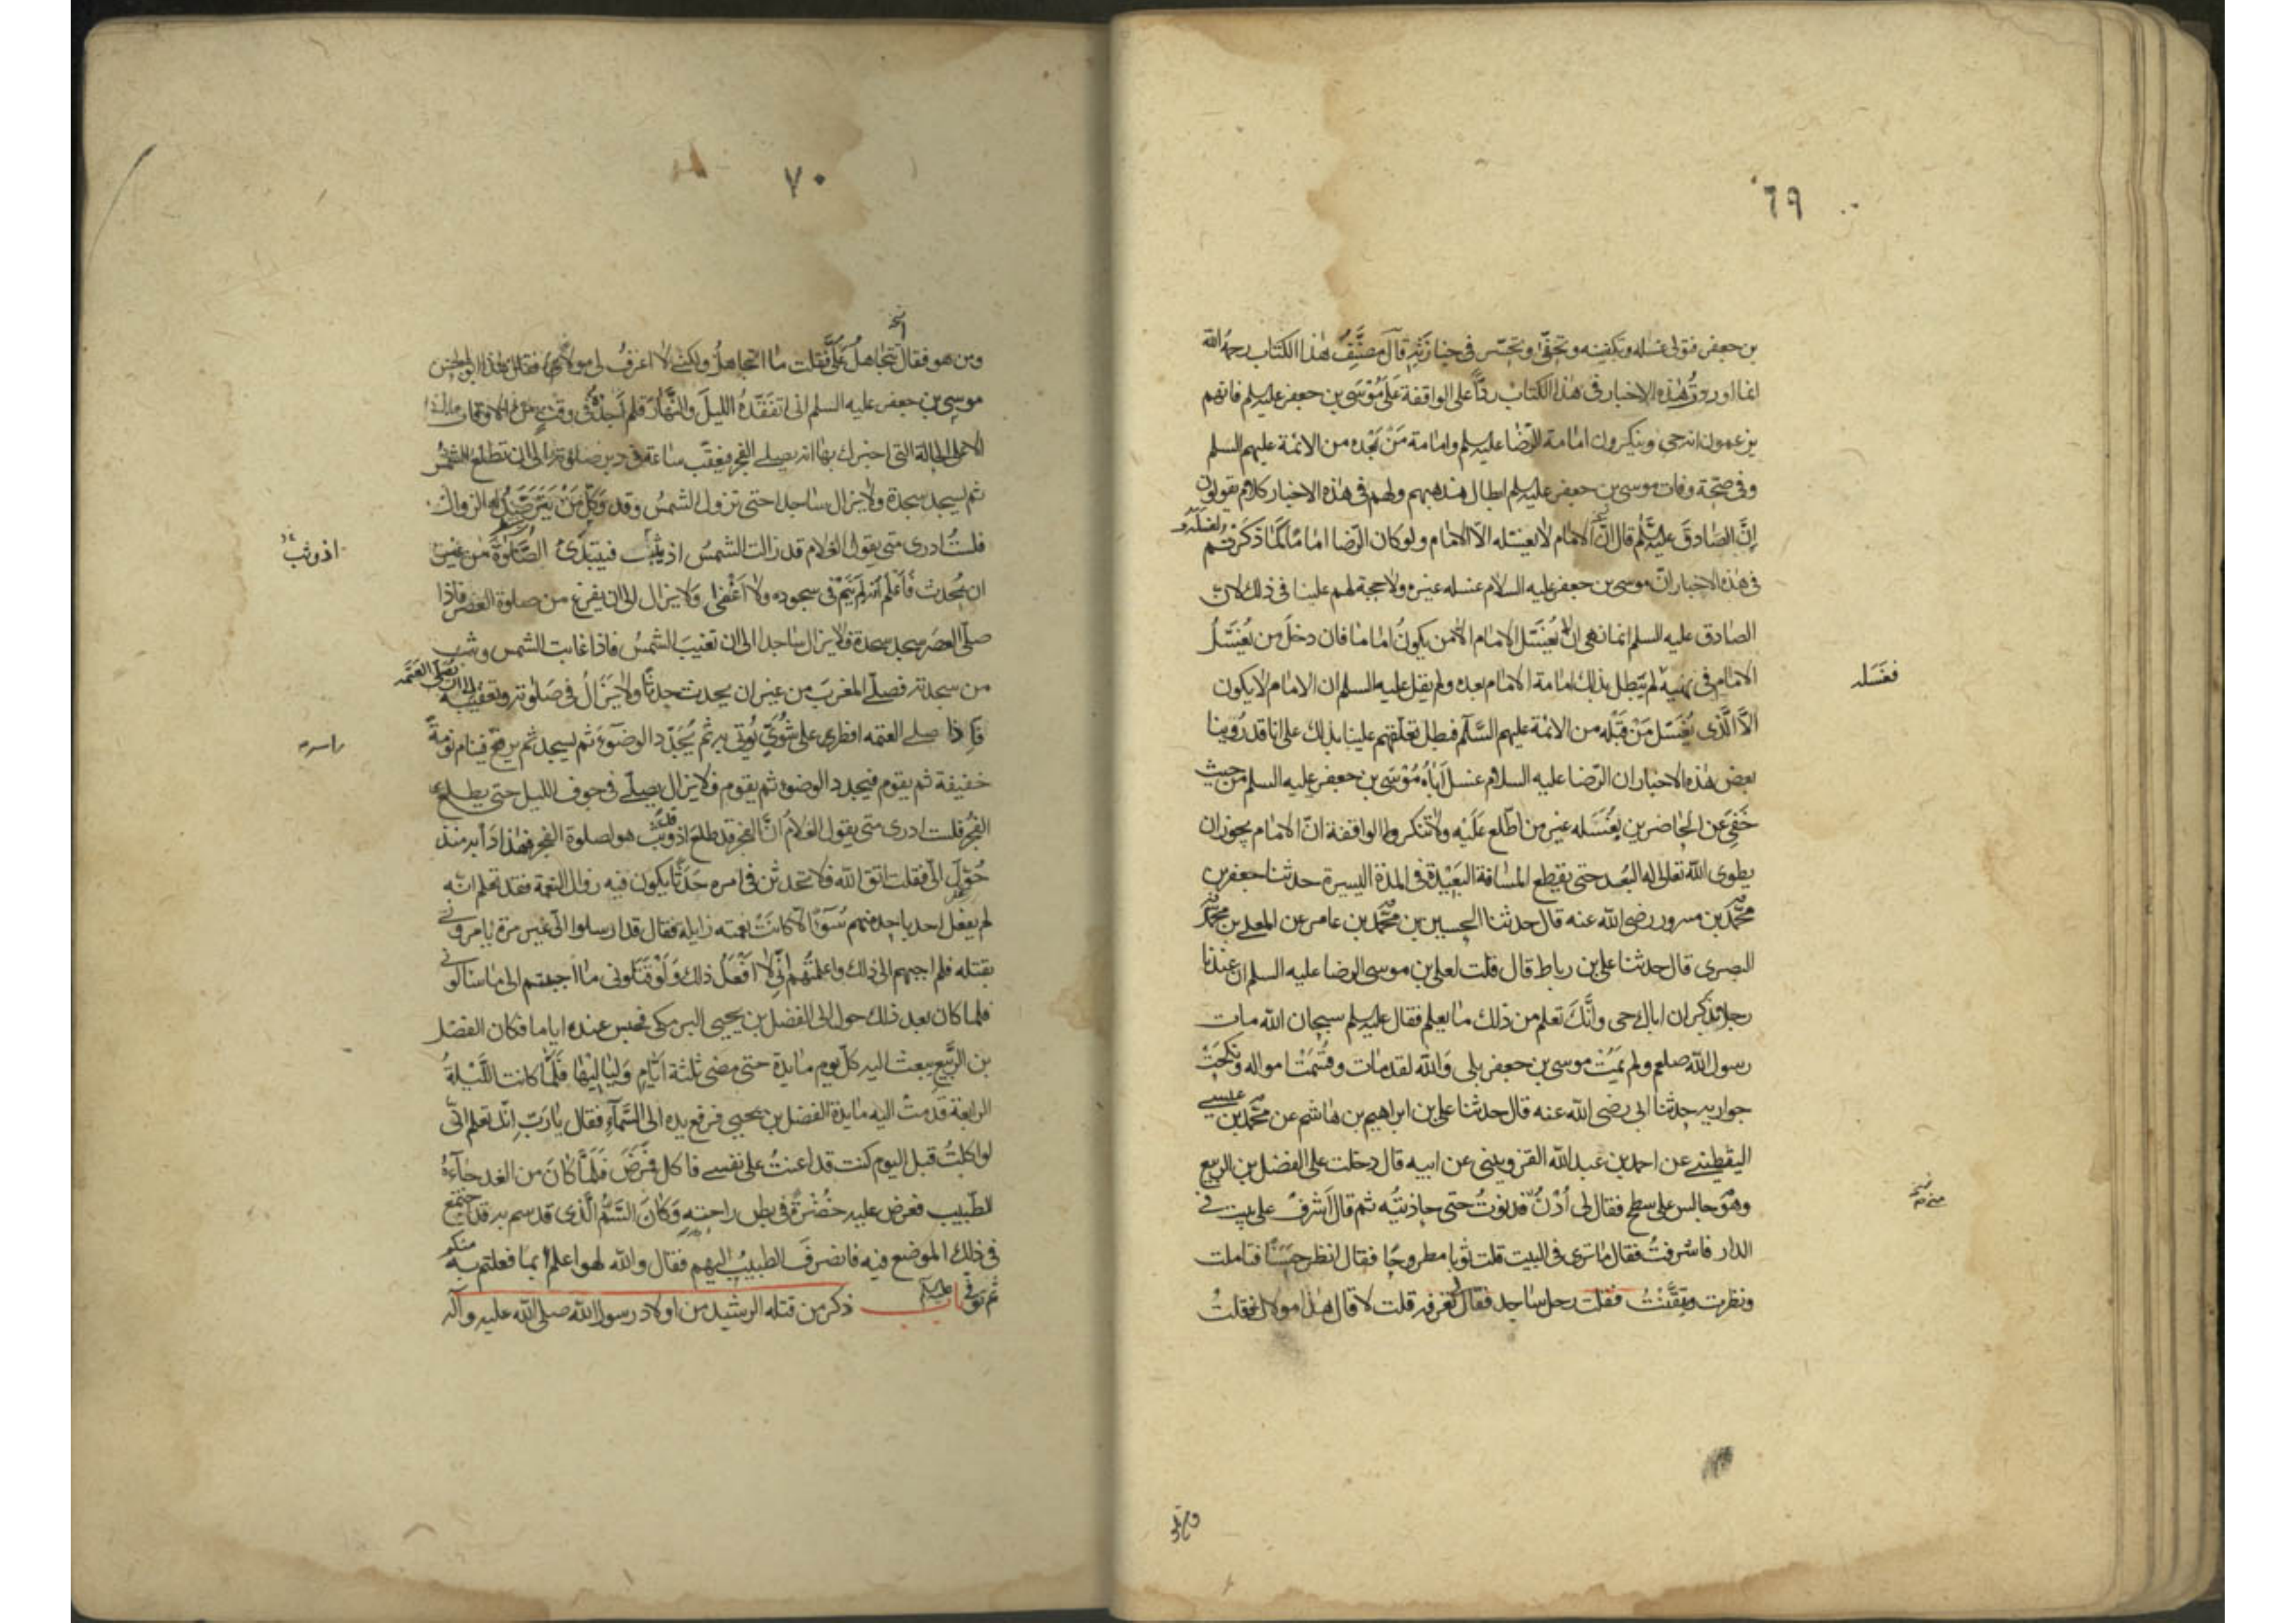 ٦٩
بن جعفر فتولى غسله وتكفينه وتحفى وتحسر فى جنازته قال مصنف هذا الكتاب رحمه الله
انما اوردت هذه الاخبار فى هذا الكتاب ردّا على الواقفة على موسى بن جعفر عليه السلم فانهم
يزعمون انه حى وينكرون امامة الرضا عليه السلم وامامة من بعده من الائمة عليهم السلم
وفى صحّة وفات موسى بن جعفر عليه السلم ابطال مذهبهم ولهم فى هذه الاخبار كلام يقولون
انّ الصادق عليه السلم قال انّ الامام لا يغسله الّا الامام ولو كان الرضا اماما لما ذكرتم
فى هذه الاخبار انّ موسى بن جعفر عليه السلام غسله غيره ولا حجة لهم علينا فى ذلك لان
الصادق عليه السلم انما نهى ان يغسّل الامام الّا من يكون اماما فان دخل من يغسل
الامام فى نهيه لم يبطل بذلك امامة الامام بعده ولم يقل عليه السلم ان الامام لا يكون
فغسله
الّا الّذى يغسّل من قبله من الائمة عليهم السّلم فبطل تعلّقهم علينا بذلك على انا قد روينا
بعض هذه الاخبار ان الرّضا عليه السلام غسل اباه موسى بن جعفر عليه السلم من حيث
خفى عن الحاضرين لغسله غير من اطّلع عليه ولا تنكر الواقفة انّ الامام يجوز ان
يطوى الله تعالى له البعد حتى يقطع المسافة البعيدة فى المدة اليسيرة حدثنا جعفر بن
محمّد بن مسرور رضى الله عنه قال حدثنا الحسين بن محمّد بن عامر عن المعلى بن محمّد
البصرى قال حدثنا على بن رباط قال قلت لعلى بن موسى الرضا عليه السلم ان عندنا
رجلا يذكر ان اباك حى وانّك تعلم من ذلك ما يعلم فقال عليه السلم سبحان الله مات
رسول الله صلعم ولم يمت موسى بن جعفر بلى والله لقد مات وقسمت امواله ونكحت
جواريه حدثنا ابى رضى الله عنه قال حدثنا على بن ابراهيم بن هاشم عن محمّد بن عيسى
اليقطينى عن احمد بن عبد الله القزوينى عن ابيه قال دخلت على الفضل بن الربيع
وهو جالس على سطح فقال لى اُدن فدنوت حتى حاذيته ثم قال اشرف على بيت فى
الدار فاشرفت فقال ما ترى فى البيت قلت ثوبا مطروحا فقال انظر حسنا فتاملت
ونظرت فتيقّنت فقلت رجل ساجد فقال تعرفه قلت لا قال هذا مولاك فقلت
٧٠
ومن هو فقال تتجاهل علىّ فقلت ما اتجاهل ولكنى لا اعرف لى مولا فقال هذا ابو الحسن
موسى بن جعفر عليه السلم انى اتفقّده الليل والنّهار فلم اجده فى وقت من الاوقات
الا على الحالة التى اخبرك بها انه يصلى الفجر فيعقّب ساعة فى دبر صلوته الى ان تطلع الشمس
ثم يسجد سجدة ولا يزال ساجدا حتى تزول الشمس وقد وكّل من يترصّد له الزوال
فلست ادرى متى يقول الغلام قد زالت الشمس اذ يثب فيبتدى الصّلوة من غير
اذ وثب
ان يحدث فاعلم انه لم ينم فى سجوده ولا اغفى ولا يزال الى ان يفرغ من صلوة العصر فاذا
صلّى العصر سجد سجدة فلا يزال ساجدا الى ان تغيب الشمس فاذا غابت الشمس وثب
من سجدته فصلّى المغرب من غير ان يحدث حدثا ولا يزال فى صلوته وتعقيبه الى ان يصلّى العتمه
فاذا صلى العتمه افطر على شوىّ يوتى به ثم يجدّد الوضوء ثم يسجد ثم يرفع فينام نومة
راسه
خفيفة ثم يقوم فيجدد الوضوء ثم يقوم فلا يزال يصلّى فى جوف الليل حتى يطلع
الفجر فلست ادرى متى يقول الغلام انّ الفجر قد طلع اذ وثب هو لصلوة الفجر فهذا دابه منذ
حوّل الىّ فقلت اتق الله فلا تحدثن فى امره حدثا يكون فيه زوال النعمة فقد تعلم انّه
لم يفعل احد باحد منهم سوءا الّا كانت نعمته زايلة فقال قد ارسلوا الىّ غير مرة يامرونى
بقتله فلم اجبهم الى ذلك واعلمتهم انّى لا افعل ذلك ولو قتلونى ما اجبتهم الى ما سالونى
فلما كان بعد ذلك حول الى الفضل بن يحيى البرمكى فحبس عنده اياما فكان الفضل
بن الرّبيع يبعث اليه كل يوم مايدة حتى مضى ثلثة ايّام ولياليها فلمّا كانت اللّيلة
الرابعة قدمت اليه مايدة الفضل بن يحيى فرفع يده الى السّماء فقال يا ربّ انّك تعلم انّى
لو اكلت قبل اليوم كنت قد اعنت على نفسى فاكل فمرض فلمّا كان من الغد جاءه
الطّبيب فعرض عليه خضرة فى بطن راحته وكان السّمّ الّذى قد سم به قد اجتمع
فى ذلك الموضع فيه فانصرف الطبيب اليهم فقال والله لهو اعلم بما فعلتم به منكم
ثم توفى عليه السلم باب ذكر من قتله الرشيد من اولاد رسول الله صلى الله عليه وآله